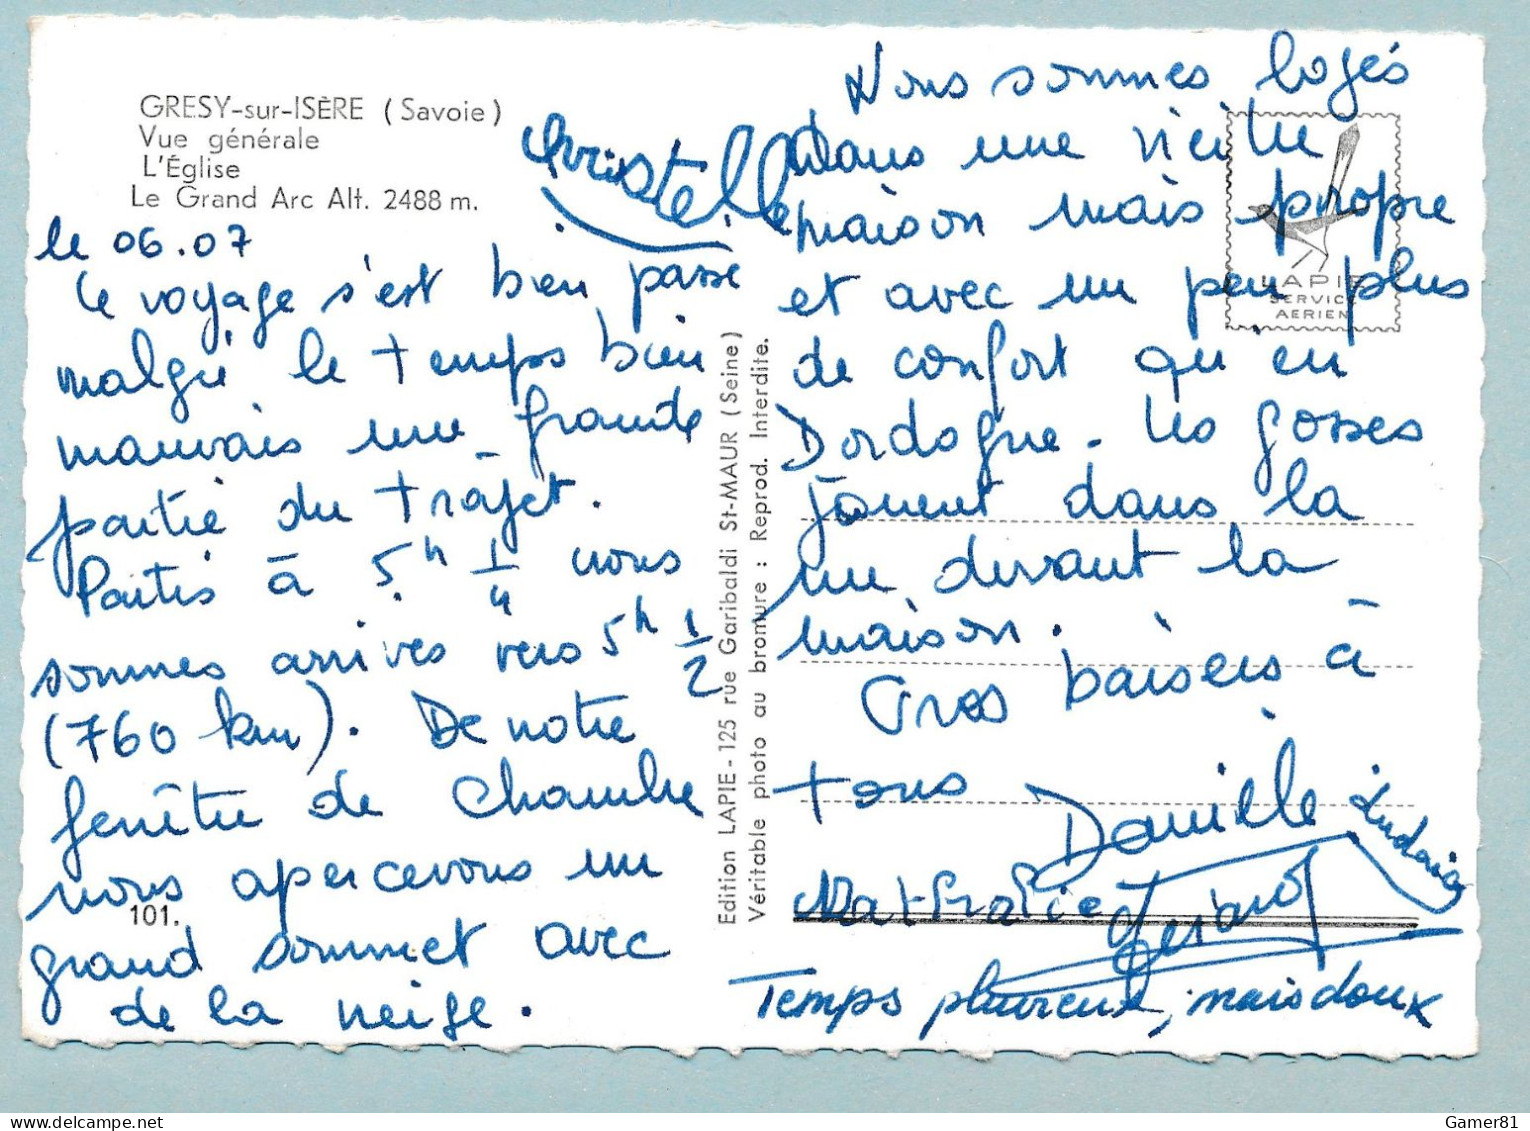 GRESY-sur-ISÈRE (Savoie)
Vue générale
L'Église
Le Grand Arc Alt. 2488 m.
Christelle
le 06.07
Le voyage s'est bien passé
malgré le temps bien
mauvais une grande
partie du trajet.
Partis à 5h 1/4 nous
sommes arrivés vers 5h 1/2
(760 km). De notre
fenêtre de chambre
nous apercevons un
grand sommet avec
de la neige.
101.
Edition LAPIE - 125 rue Garibaldi St-MAUR (Seine)
Véritable photo au bromure : Reprod. Interdite.
LAPIE
SERVICE
AERIEN
Nous sommes logés
dans une vieille
maison mais propre
et avec un peu plus
de confort qu'en
Dordogne. Les gosses
jouent dans la
rue devant la
maison.
Gros baisers à
tous
Danielle
Ludovic
Nathalie
Gérard
Temps pluvieux, mais doux
Gamer81